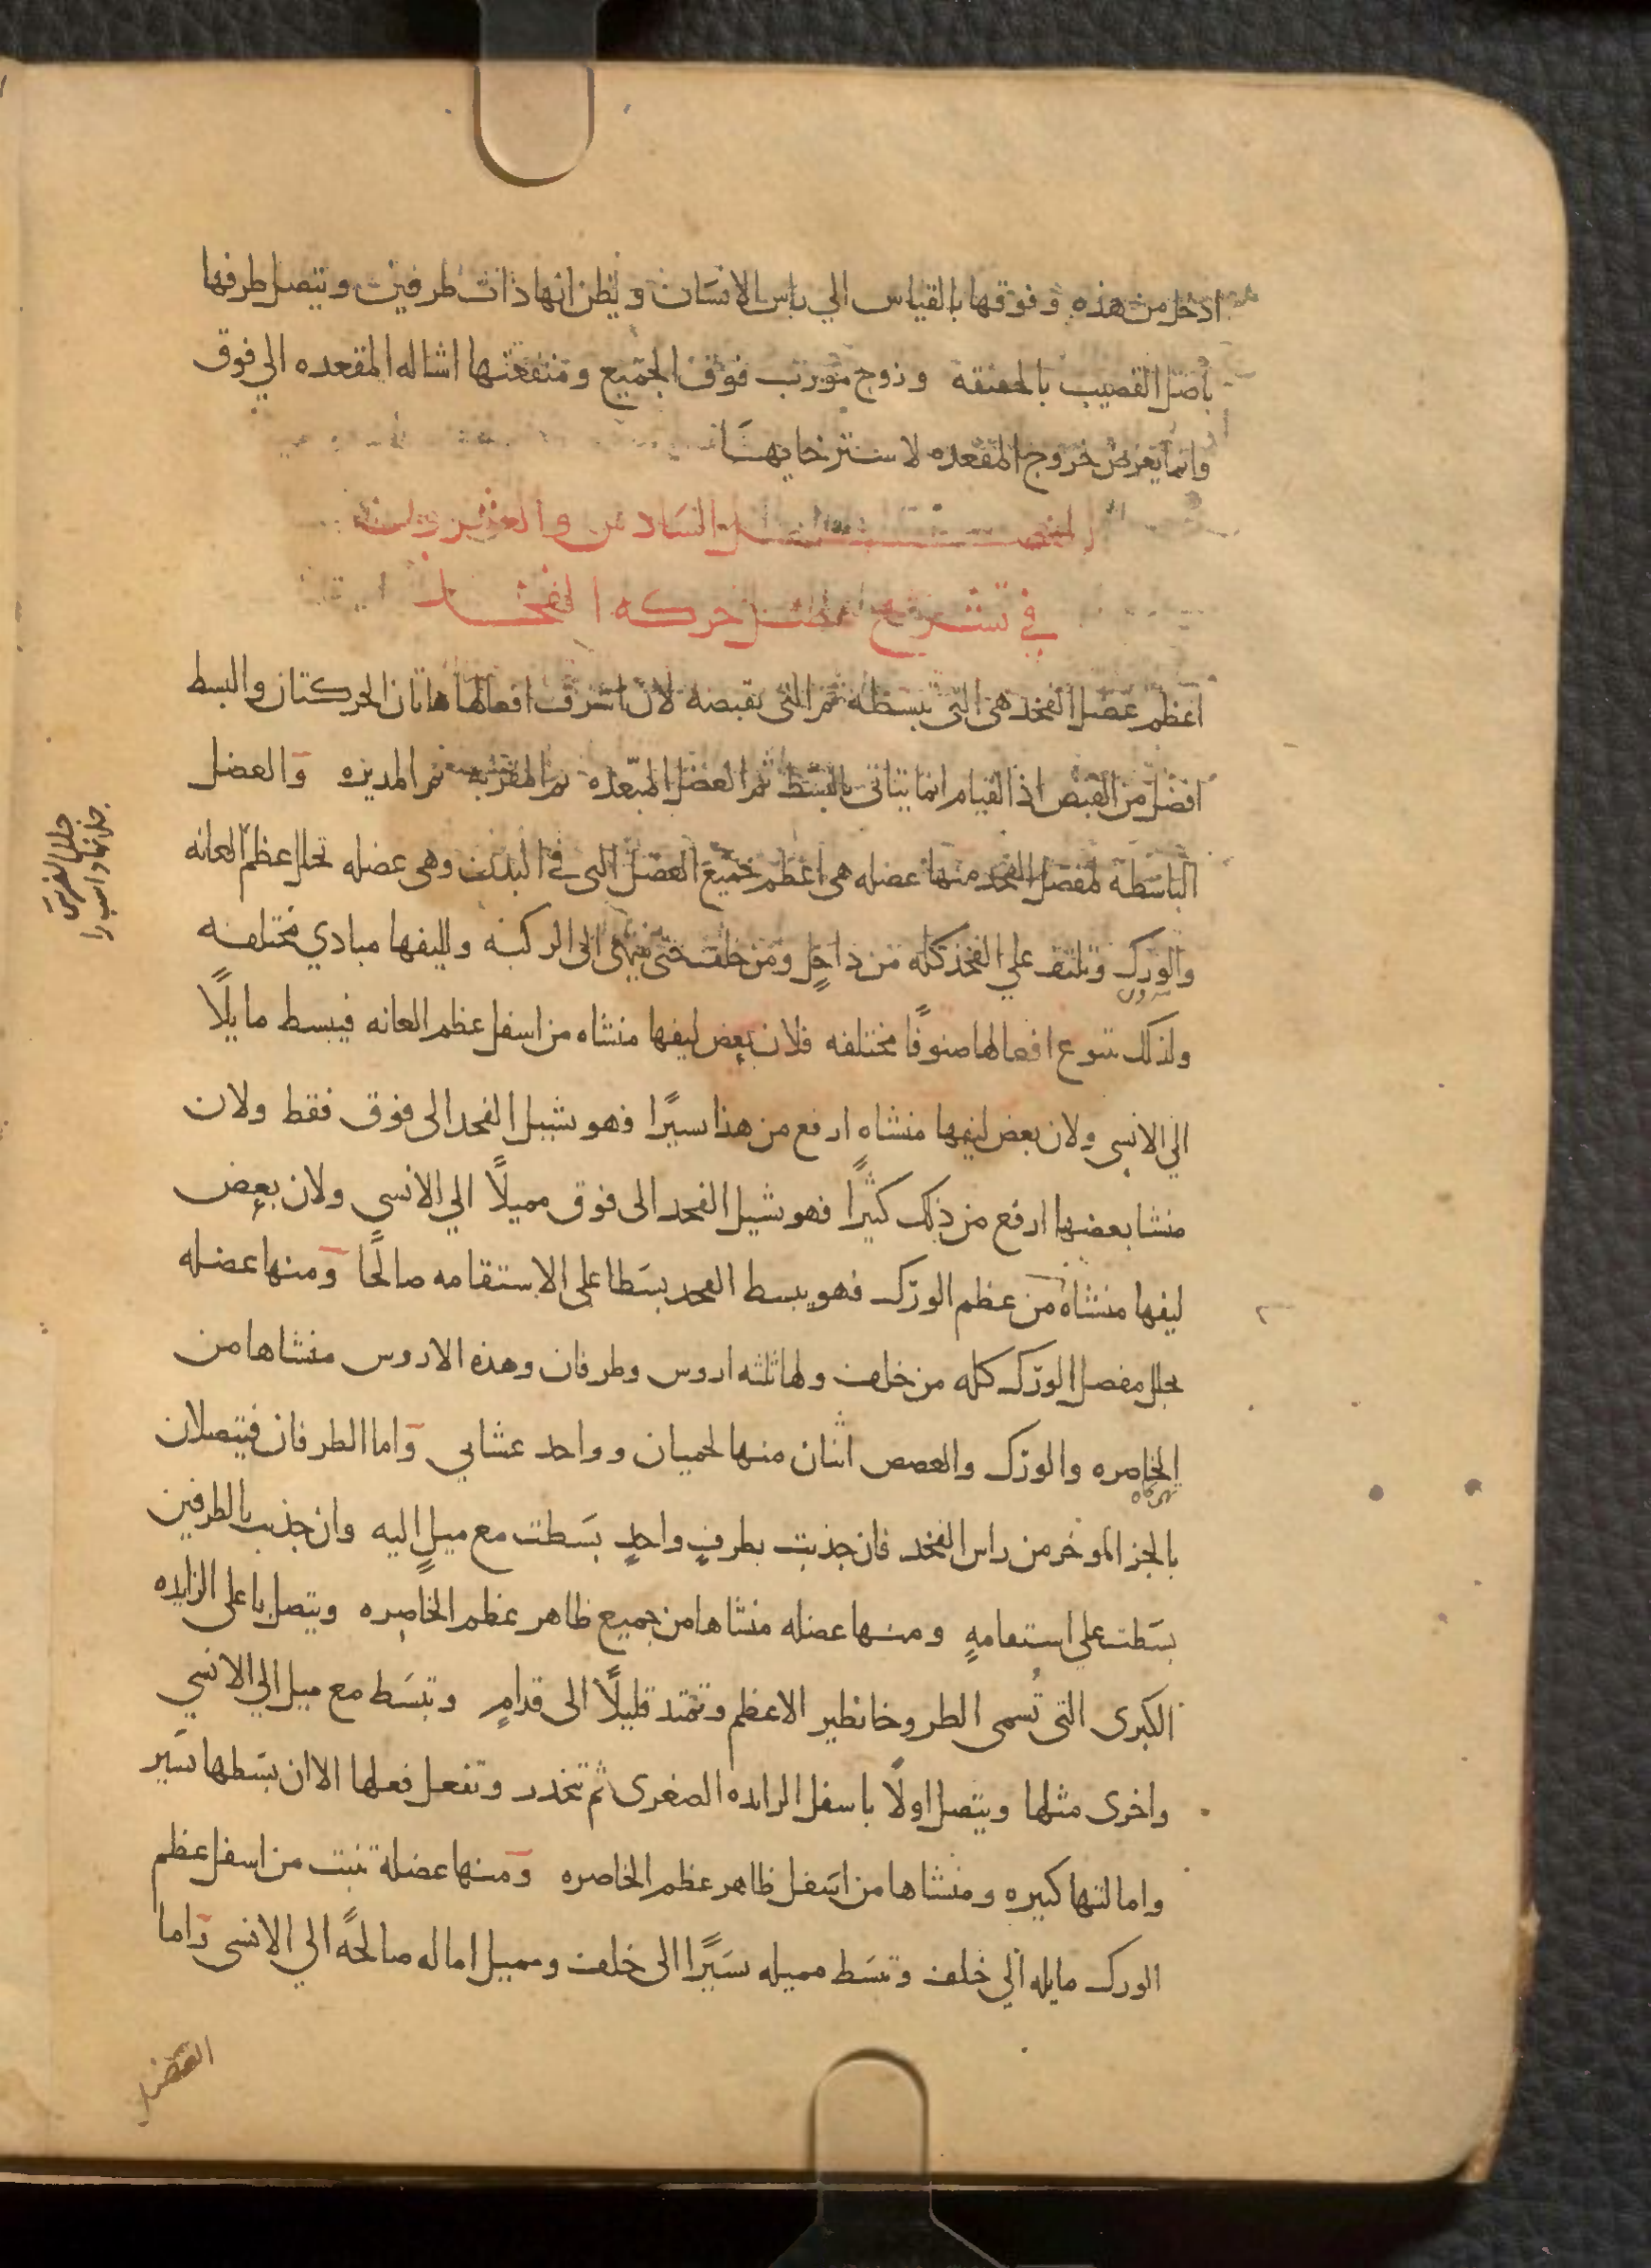 ادخل من هذه وفوقها بالقياس الي راس الانسان ويظن انها ذات طرفين ويتصل طرفها
باصل القصيب بالحقيقة وزوج مورب فوق الجميع ومنفعتها اشاله المقعده الي فوق
وانما يعرض خروج المقعده لاسترخايهـا
الفصـــل السادس والعشرون
في تشريح عضل حركه الفخـذ
اعظم عضل الفخد هى التى تبسطه ثم التى تقبضه لان اشرف افعالها هاتان الحركتان والبسط
افضل من القبض اذ القيام انما يتاتى بالبسط ثم العضل المبعده ثم المقربه ثم المديره والعضل
الباسطة لمفصل الفخد منها عضله هى اعظم جميع العضل التى في البدن وهى عضله تجلل عظم العانه
والورك وتلتف علي الفخذ كله من داخل ومن خلف حتى ينتهى الى الركبه ولليفها مبادي مختلفه
ولذلك تتنوع افعالها صنوفًا مختلفه فلان بعض ليفها منشاه من اسفل عظم العانه فيبسط مايلًا
الي الانسى ولان بعض ليفها منشاه ارفع من هذا يسيرًا فهو يشيل الفخد الى فوق فقط ولان
منشا بعضها ارفع من ذلك كثيرًا فهو يشيل الفخد الى فوق مميلًا الي الانسى ولان بعض
ليفها منشاه من عظم الورك فهو يبسط الفخد بسطا على الاستقامه صالحًا ومنها عضله
تجلل مفصل الورك كله من خلف ولها ثلثه اروس وطرفان وهذه الاروس منشاها من
الخاصره والورك والعصعص اثنان منها لحميان وواحد غشايي واما الطرفان فيتصلان
بالجز الموخر من راس الفخد فان جذبت بطرفٍ واحدٍ بسطت مع ميلٍ اليه وان جذبت بالطرفين
بسطت علي استقامهٍ ومنها عضله منشاها من جميع ظاهر عظم الخاصره ويتصل باعلى الزايده
الكبرى التى تُسمى الطروخانطير الاعظم وتمتد قليلًا الى قدامٍ وتبسط مع ميل الي الانسي
واخرى مثلها ويتصل اولًا باسفل الزايده الصغرى ثم تنحدر وتفعل فعلها الا ان بسطها يسير
وامالتها كبيره ومنشاها من اسفل ظاهر عظم الخاصره ومنها عضلة تنبت من اسفل عظم
الورك مايله الي خلف وتبسط مميله يسيرًا الى خلف ومميل اماله صالحةً الي الانسى واما